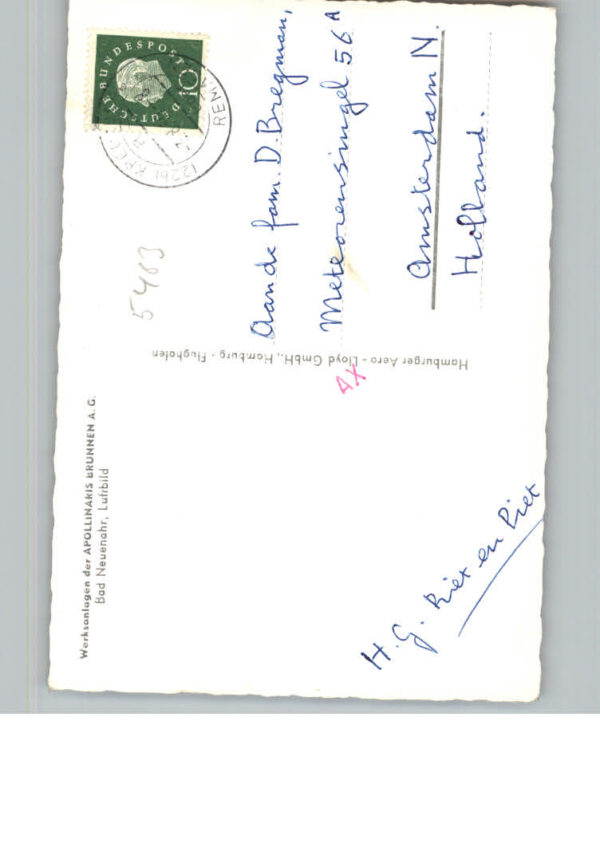 Werksanlagen der APOLLINARIS BRUNNEN A.G.
Bad Neuenahr, Luftbild
H. G. Riet en Piet
Hamburger Aero - Lloyd GmbH., Hamburg - Flughafen
5463
DEUTSCHE BUNDESPOST
10
(22b)
REM
Aan de fam. D. Bregman,
Meteorensingel 56 A
Amsterdam N.
Holland.